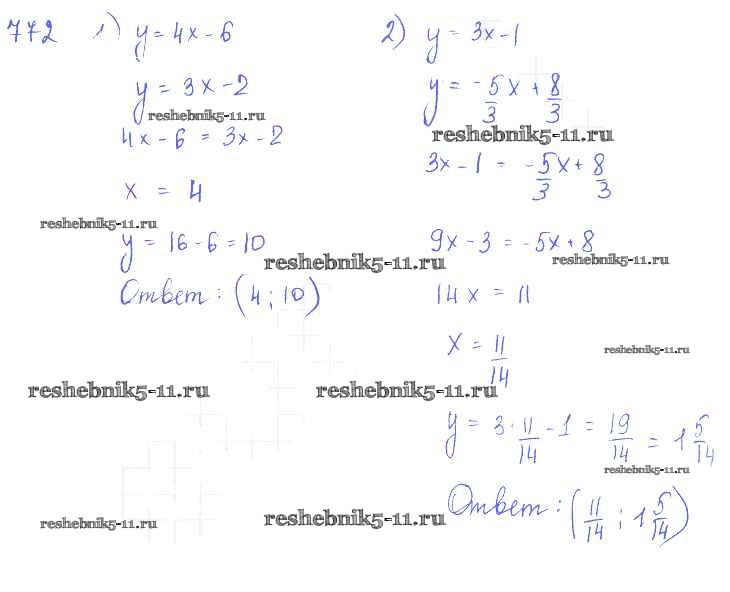 772 1) y = 4x - 6
y = 3x - 2
reshebnik5-11.ru
4x - 6 = 3x - 2
x = 4
reshebnik5-11.ru
y = 16 - 6 = 10
reshebnik5-11.ru
Ответ: (4; 10)
2) y = 3x - 1
y = -5/3 x + 8/3
reshebnik5-11.ru
3x - 1 = -5/3 x + 8/3
9x - 3 = -5x + 8
reshebnik5-11.ru
14x = 11
x = 11/14
reshebnik5-11.ru
reshebnik5-11.ru
reshebnik5-11.ru
y = 3 · 11/14 - 1 = 19/14 = 1 5/14
reshebnik5-11.ru
Ответ: (11/14; 1 5/14)
reshebnik5-11.ru
reshebnik5-11.ru